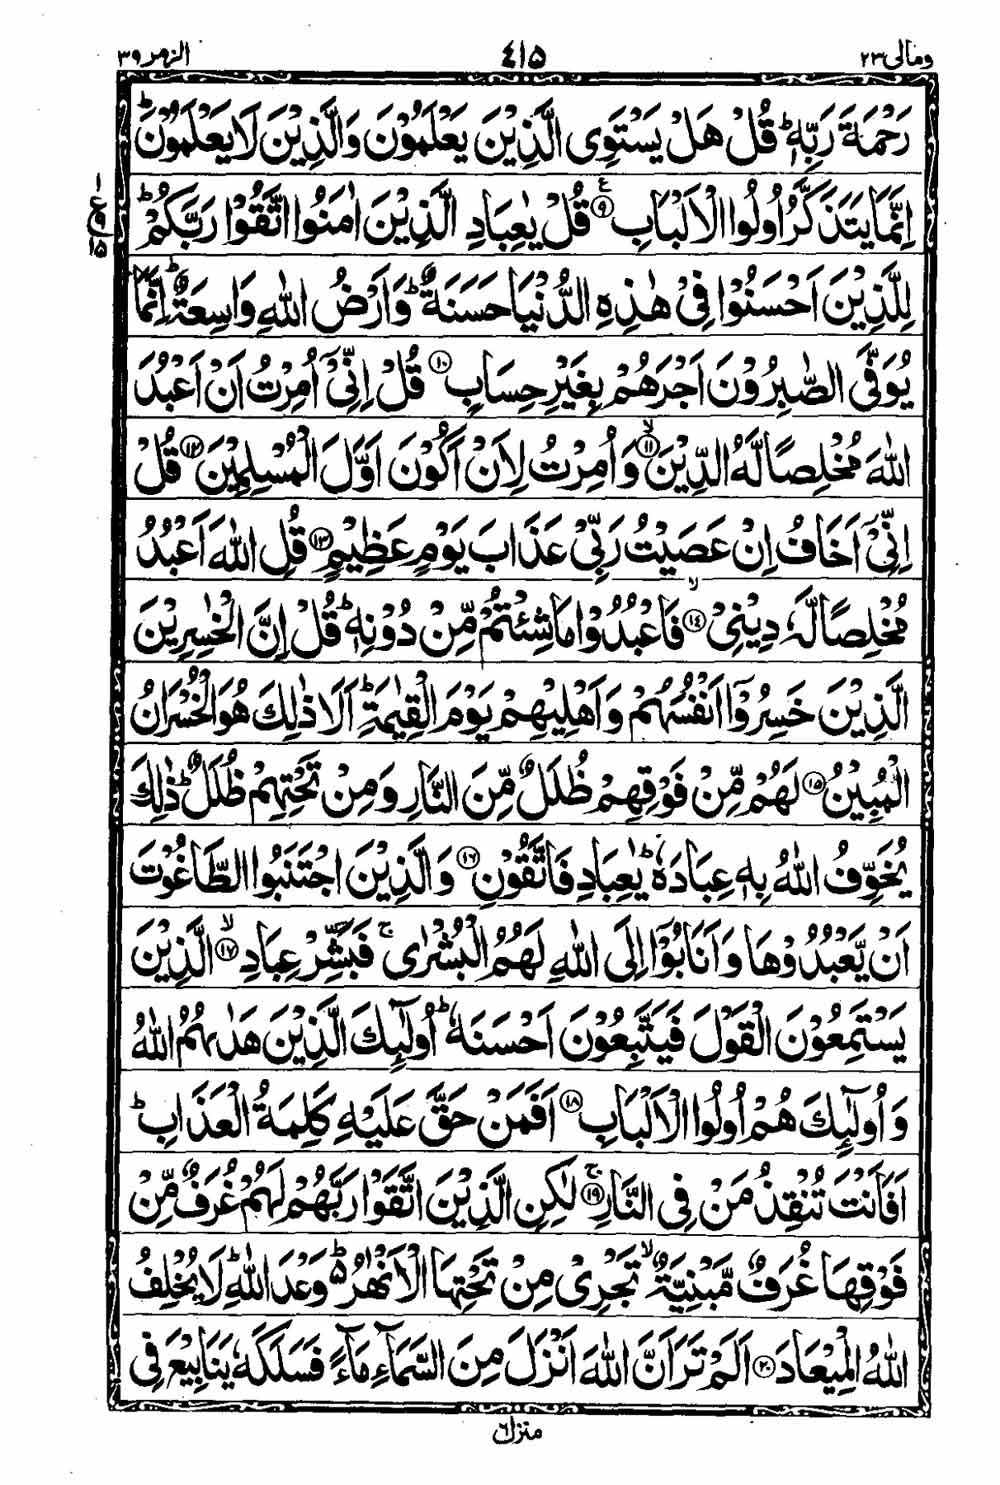 ومالی ۲۳ ۴۱۵ الزمر ۳۹
رَحْمَةَ رَبِّهٖ ؕ قُلْ هَلْ يَسْتَوِى الَّذِيْنَ يَعْلَمُوْنَ وَالَّذِيْنَ لَا يَعْلَمُوْنَ ؕ
اِنَّمَا يَتَذَكَّرُ اُولُوا الْاَلْبَابِ ۹ ع قُلْ يٰعِبَادِ الَّذِيْنَ اٰمَنُوا اتَّقُوْا رَبَّكُمْ ؕ
۱ ع ۹ ۱۵
لِلَّذِيْنَ اَحْسَنُوْا فِىْ هٰذِهِ الدُّنْيَا حَسَنَةٌ ؕ وَاَرْضُ اللّٰهِ وَاسِعَةٌ ؕ اِنَّمَا
يُوَفَّى الصّٰبِرُوْنَ اَجْرَهُمْ بِغَيْرِ حِسَابٍ ۱۰ قُلْ اِنِّىْۤ اُمِرْتُ اَنْ اَعْبُدَ
اللّٰهَ مُخْلِصًا لَّهُ الدِّيْنَ ۱۱ ۙ وَاُمِرْتُ لِاَنْ اَكُوْنَ اَوَّلَ الْمُسْلِمِيْنَ ۱۲ قُلْ
اِنِّىْۤ اَخَافُ اِنْ عَصَيْتُ رَبِّىْ عَذَابَ يَوْمٍ عَظِيْمٍ ۱۳ قُلِ اللّٰهَ اَعْبُدُ
مُخْلِصًا لَّهٗ دِيْنِىْ ۱۴ ۙ فَاعْبُدُوْا مَا شِئْتُمْ مِّنْ دُوْنِهٖ ؕ قُلْ اِنَّ الْخٰسِرِيْنَ
الَّذِيْنَ خَسِرُوْۤا اَنْفُسَهُمْ وَاَهْلِيْهِمْ يَوْمَ الْقِيٰمَةِ ؕ اَلَا ذٰلِكَ هُوَ الْخُسْرَانُ
الْمُبِيْنُ ۱۵ لَهُمْ مِّنْ فَوْقِهِمْ ظُلَلٌ مِّنَ النَّارِ وَمِنْ تَحْتِهِمْ ظُلَلٌ ؕ ذٰلِكَ
يُخَوِّفُ اللّٰهُ بِهٖ عِبَادَهٗ ؕ يٰعِبَادِ فَاتَّقُوْنِ ۱۶ وَالَّذِيْنَ اجْتَنَبُوا الطَّاغُوْتَ
اَنْ يَّعْبُدُوْهَا وَاَنَابُوْۤا اِلَى اللّٰهِ لَهُمُ الْبُشْرٰى ۚ فَبَشِّرْ عِبَادِ ۱۷ ۙ الَّذِيْنَ
يَسْتَمِعُوْنَ الْقَوْلَ فَيَتَّبِعُوْنَ اَحْسَنَهٗ ؕ اُولٰٓئِكَ الَّذِيْنَ هَدٰىهُمُ اللّٰهُ
وَاُولٰٓئِكَ هُمْ اُولُوا الْاَلْبَابِ ۱۸ اَفَمَنْ حَقَّ عَلَيْهِ كَلِمَةُ الْعَذَابِ ؕ
اَفَاَنْتَ تُنْقِذُ مَنْ فِى النَّارِ ۱۹ ۚ لٰكِنِ الَّذِيْنَ اتَّقَوْا رَبَّهُمْ لَهُمْ غُرَفٌ مِّنْ
فَوْقِهَا غُرَفٌ مَّبْنِيَّةٌ ۙ تَجْرِىْ مِنْ تَحْتِهَا الْاَنْهٰرُ ؕ۵ وَعْدَ اللّٰهِ ؕ لَا يُخْلِفُ
اللّٰهُ الْمِيْعَادَ ۲۰ اَلَمْ تَرَ اَنَّ اللّٰهَ اَنْزَلَ مِنَ السَّمَآءِ مَآءً فَسَلَكَهٗ يَنَابِيْعَ فِى
منزل ۶